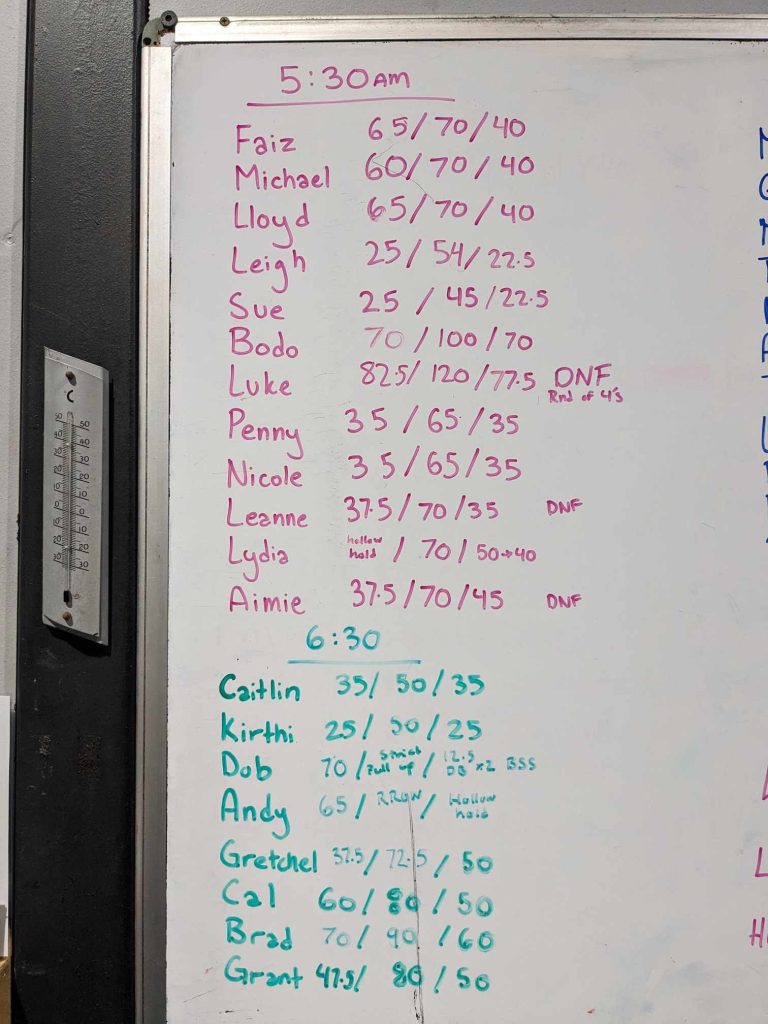 5:30AM
Faiz 65/70/40
Michael 60/70/40
Lloyd 65/70/40
Leigh 25/54/22.5
Sue 25/45/22.5
Bodo 70/100/70
Luke 82.5/120/77.5 DNF
Rnd of 4's
Penny 35/65/35
Nicole 35/65/35
Leanne 37.5/70/35 DNF
Lydia hollow hold / 70/50→40
Aimie 37.5/70/45 DNF
6:30
Caitlin 35/50/35
Kirthi 25/50/25
Dob 70/Strict Pull up/12.5 DB x2 BSS
Andy 65/RROW/Hollow hold
Gretchel 37.5/72.5/50
Cal 60/80/50
Brad 70/90/60
Grant 47.5/80/50
°C
50 50
40 40
30 30
20 20
10 10
0 0
10 10
20 20
30 30